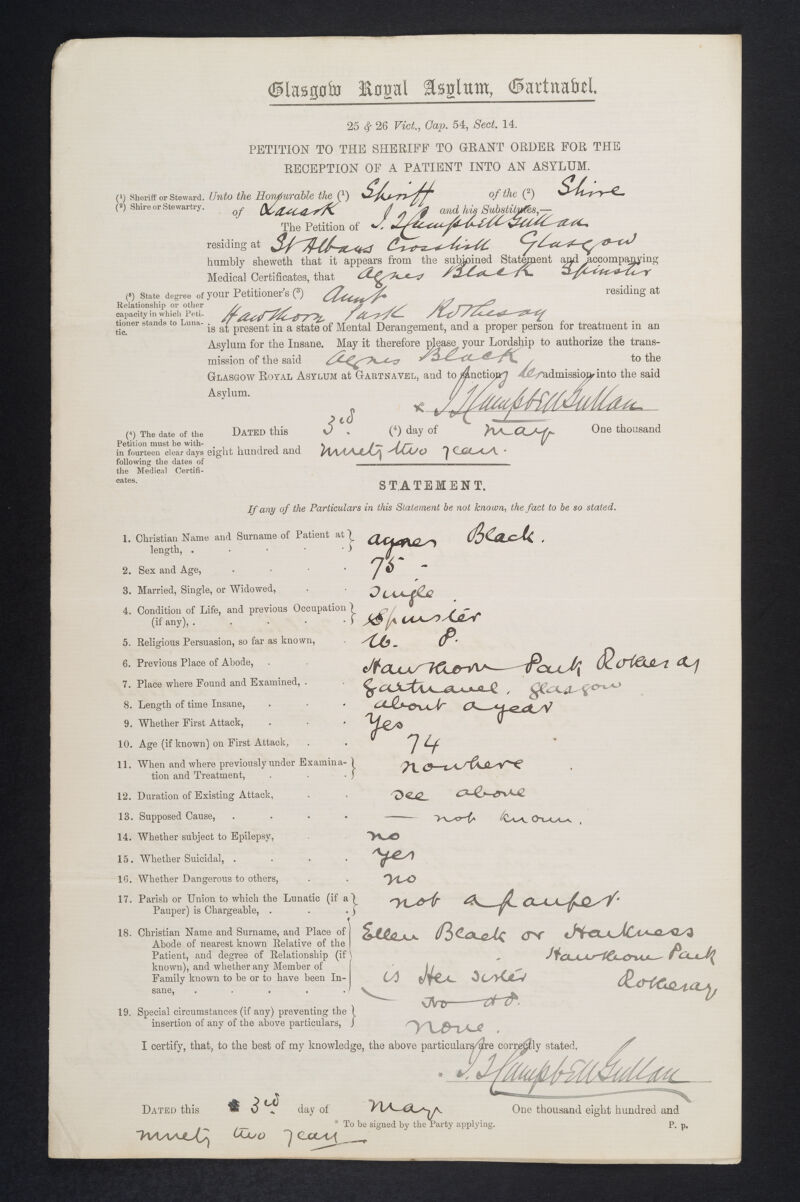 Glasgow Royal Asylum, Gartnavel.
25 & 26 Vict., Cap. 54, Sect. 14.
PETITION TO THE SHERIFF TO GRANT ORDER FOR THE
RECEPTION OF A PATIENT INTO AN ASYLUM.
(1) Sheriff or Steward.
(2) Shire or Stewartry.
Unto the Honourable the (1) Sheriff of the (2) Shire
of Lanark and his Substitutes,—
The Petition of J. Campbell Gullan
residing at St Albans Crosshill Glasgow
humbly sheweth that it appears from the subjoined Statement and accompanying
Medical Certificates, that Agnes Black Spinster
(3) State degree of
Relationship or other
capacity in which Peti-
tioner stands to Luna-
tic.
your Petitioner's (3) Aunt residing at
Hawthorn Park Rothesay
is at present in a state of Mental Derangement, and a proper person for treatment in an
Asylum for the Insane. May it therefore please your Lordship to authorize the trans-
mission of the said Agnes Black to the
GLASGOW ROYAL ASYLUM AT GARTNAVEL, and to sanction her admission into the said
Asylum.
Campbell Gullan
(4) The date of the
Petition must be with-
in fourteen clear days
following the dates of
the Medical Certifi-
cates.
DATED this 3rd (4) day of May One thousand
eight hundred and ninety two years.
STATEMENT.
If any of the Particulars in this Statement be not known, the fact to be so stated.
1. Christian Name and Surname of Patient at
length, . Agnes Black.
2. Sex and Age, 75 -
3. Married, Single, or Widowed, Single
4. Condition of Life, and previous Occupation
(if any), . Spinster
5. Religious Persuasion, so far as known, U. P.
6. Previous Place of Abode, . Hawthorn Park Rothesay
7. Place where Found and Examined, . Gartnavel. Glasgow
8. Length of time Insane, about a year
9. Whether First Attack, Yes
10. Age (if known) on First Attack, 74
11. When and where previously under Examina-
tion and Treatment, nowhere
12. Duration of Existing Attack, see above
13. Supposed Cause, — not known.
14. Whether subject to Epilepsy, no
15. Whether Suicidal, . yes
16. Whether Dangerous to others, no
17. Parish or Union to which the Lunatic (if a
Pauper) is Chargeable, . not a pauper.
18. Christian Name and Surname, and Place of
Abode of nearest known Relative of the
Patient, and degree of Relationship (if
known), and whether any Member of
Family known to be or to have been In-
sane,
Ellen Black or Harkness
Hawthorn Park
is Her sister Rothesay
19. Special circumstances (if any) preventing the
insertion of any of the above particulars, None.
I certify, that, to the best of my knowledge, the above particulars are correctly stated.
Campbell Gullan
DATED this 3rd day of May One thousand eight hundred and
ninety two years
* To be signed by the Party applying.
P. p.